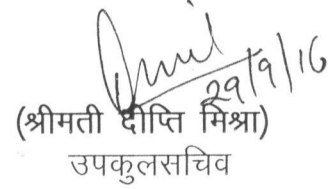 29/9/16
(श्रीमती दीप्ति मिश्रा)
उपकुलसचिव